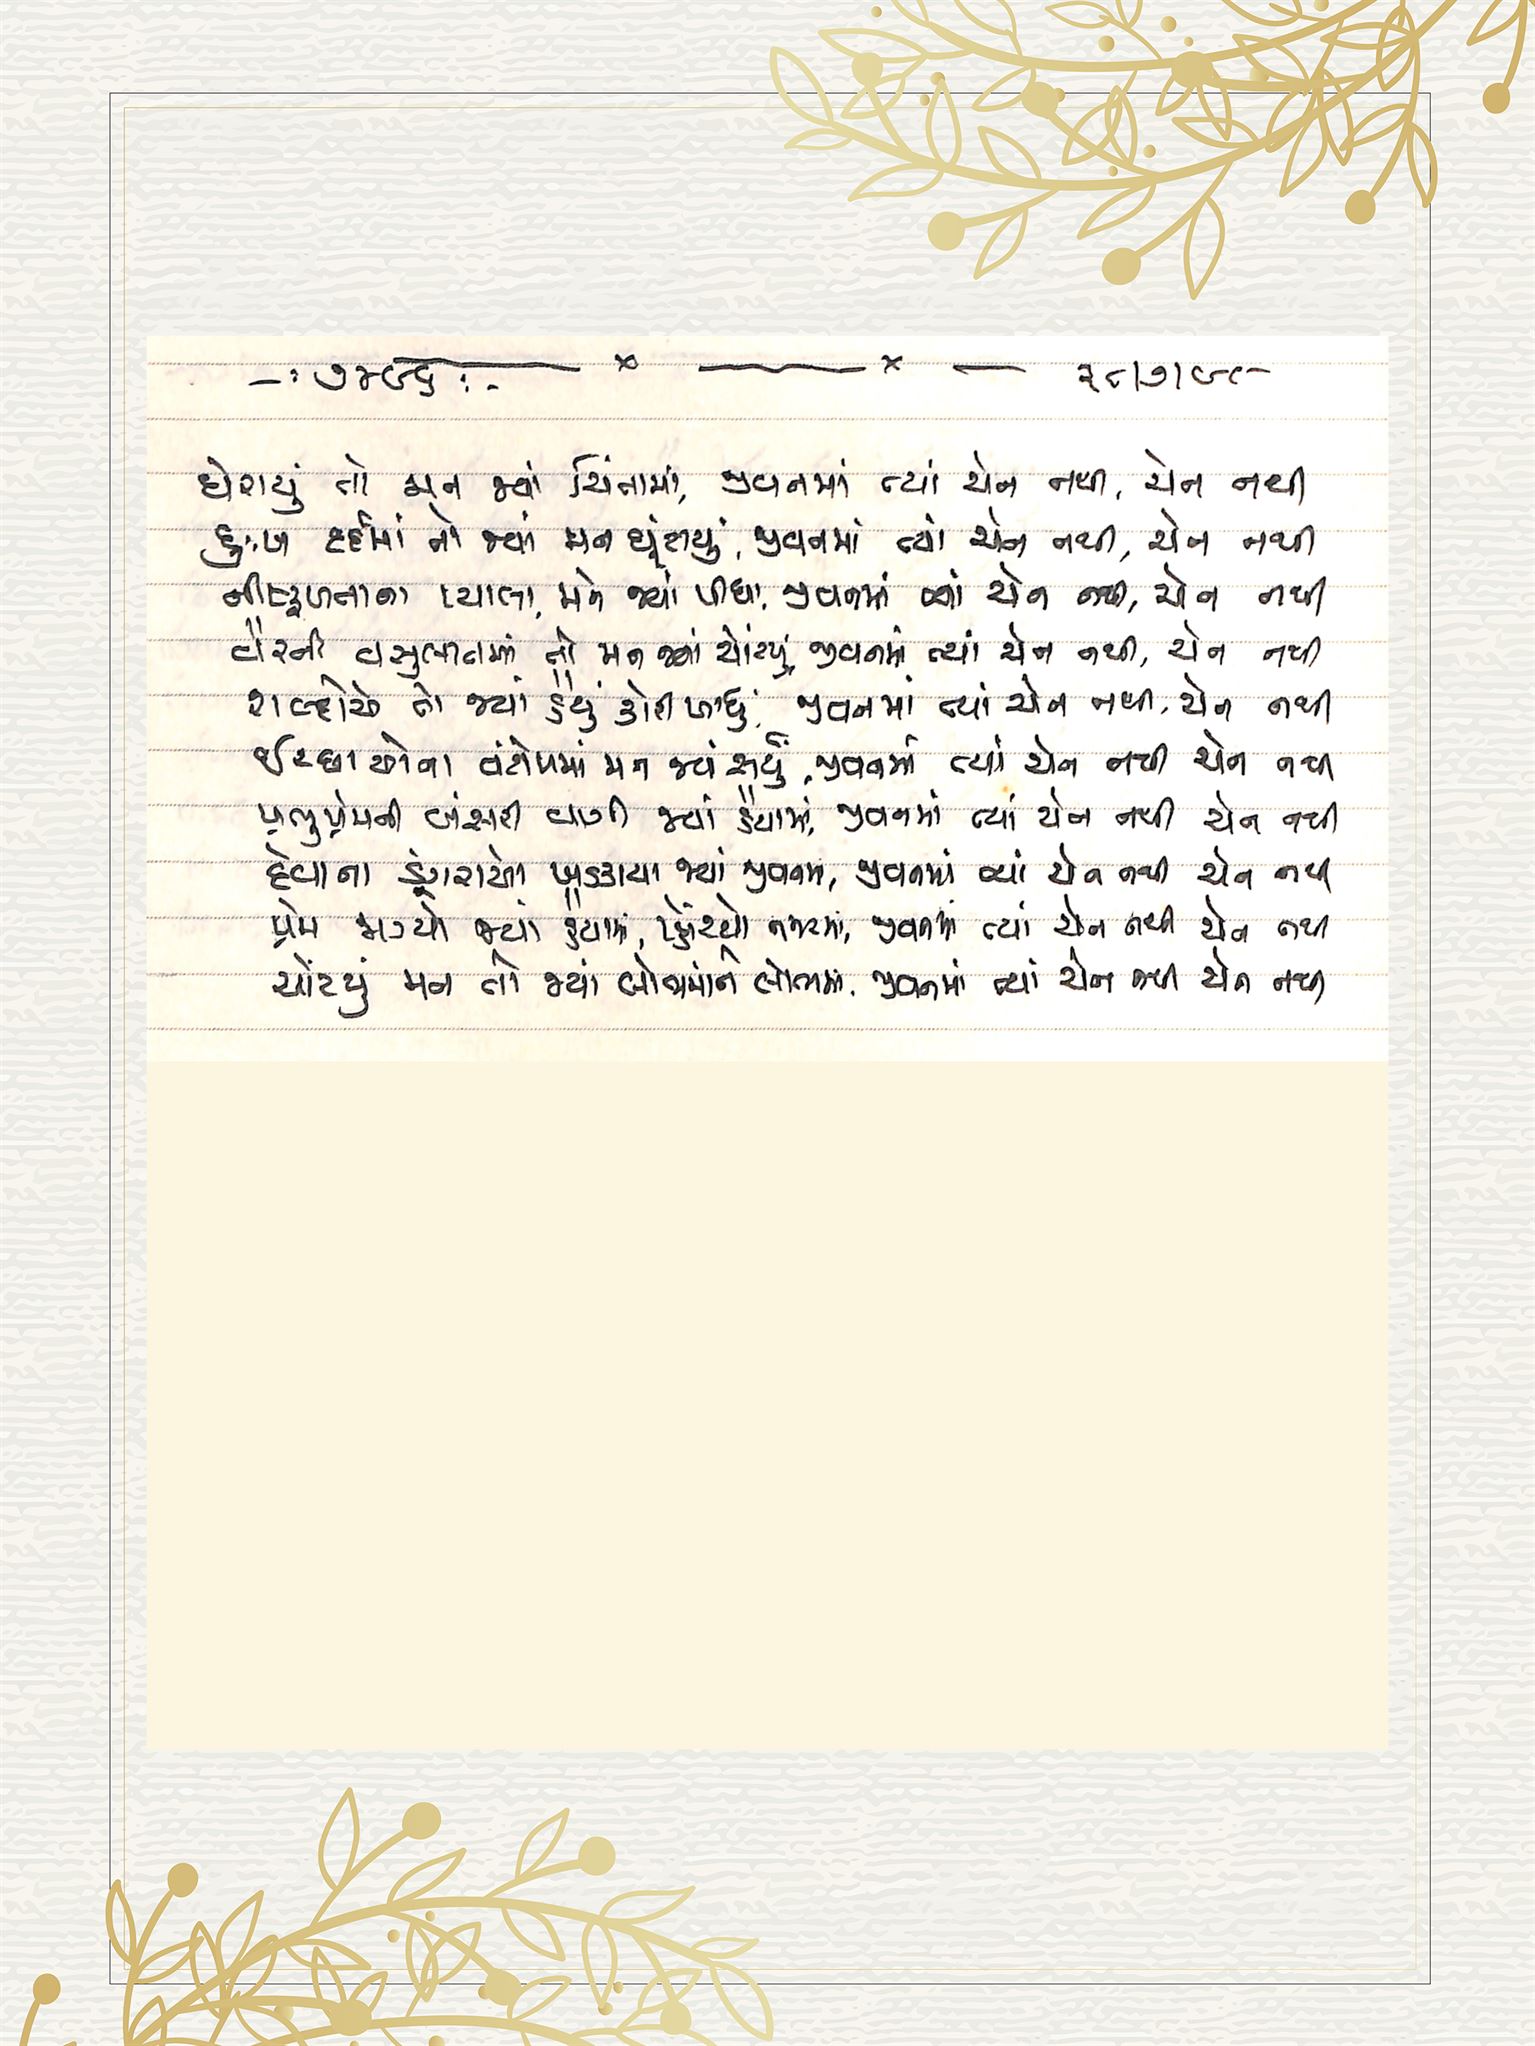 -: ૭૪૯૬ :-
ઘેરાયું તો મન જ્યાં ચિંતામાં, જીવનમાં ત્યાં ચેન નથી, ચેન નથી
દુઃખ દર્દમાં તો જ્યાં મન ઘૂંટાયું, જીવનમાં ત્યાં ચેન નથી, ચેન નથી
નીષ્ફળતાના પ્યાલા, મને જ્યાં પીધા, જીવનમાં ત્યાં ચેન નથી, ચેન નથી
વૈરની વસુલાતમાં તો મન જ્યાં ચોંટયું, જીવનમાં ત્યાં ચેન નથી, ચેન નથી
શબ્દોએ તો જ્યાં હૈયું કોરી ખાધું, જીવનમાં ત્યાં ચેન નથી, ચેન નથી
ઈર્ષ્યાઓના મન જ્યાં, જીવનમાં ત્યાં ચેન નથી ચેન નથી
પ્રભુપ્રેમની બંસરી વાગી જ્યાં હૈયામાં, જીવનમાં ત્યાં ચેન નથી ચેન નથી
દેવાના ડુંગરાઓ ખડકાયા જ્યાં જીવનમાં, જીવનમાં ત્યાં ચેન નથી ચેન નથી
પ્રેમ જાગ્યો જ્યાં હૈયામાં, નજરમાં, જીવનમાં ત્યાં ચેન નથી ચેન નથી
ચોંટયું મન તો જ્યાં લોભમાંને લોભમાં, જીવનમાં ત્યાં ચેન નથી ચેન નથી